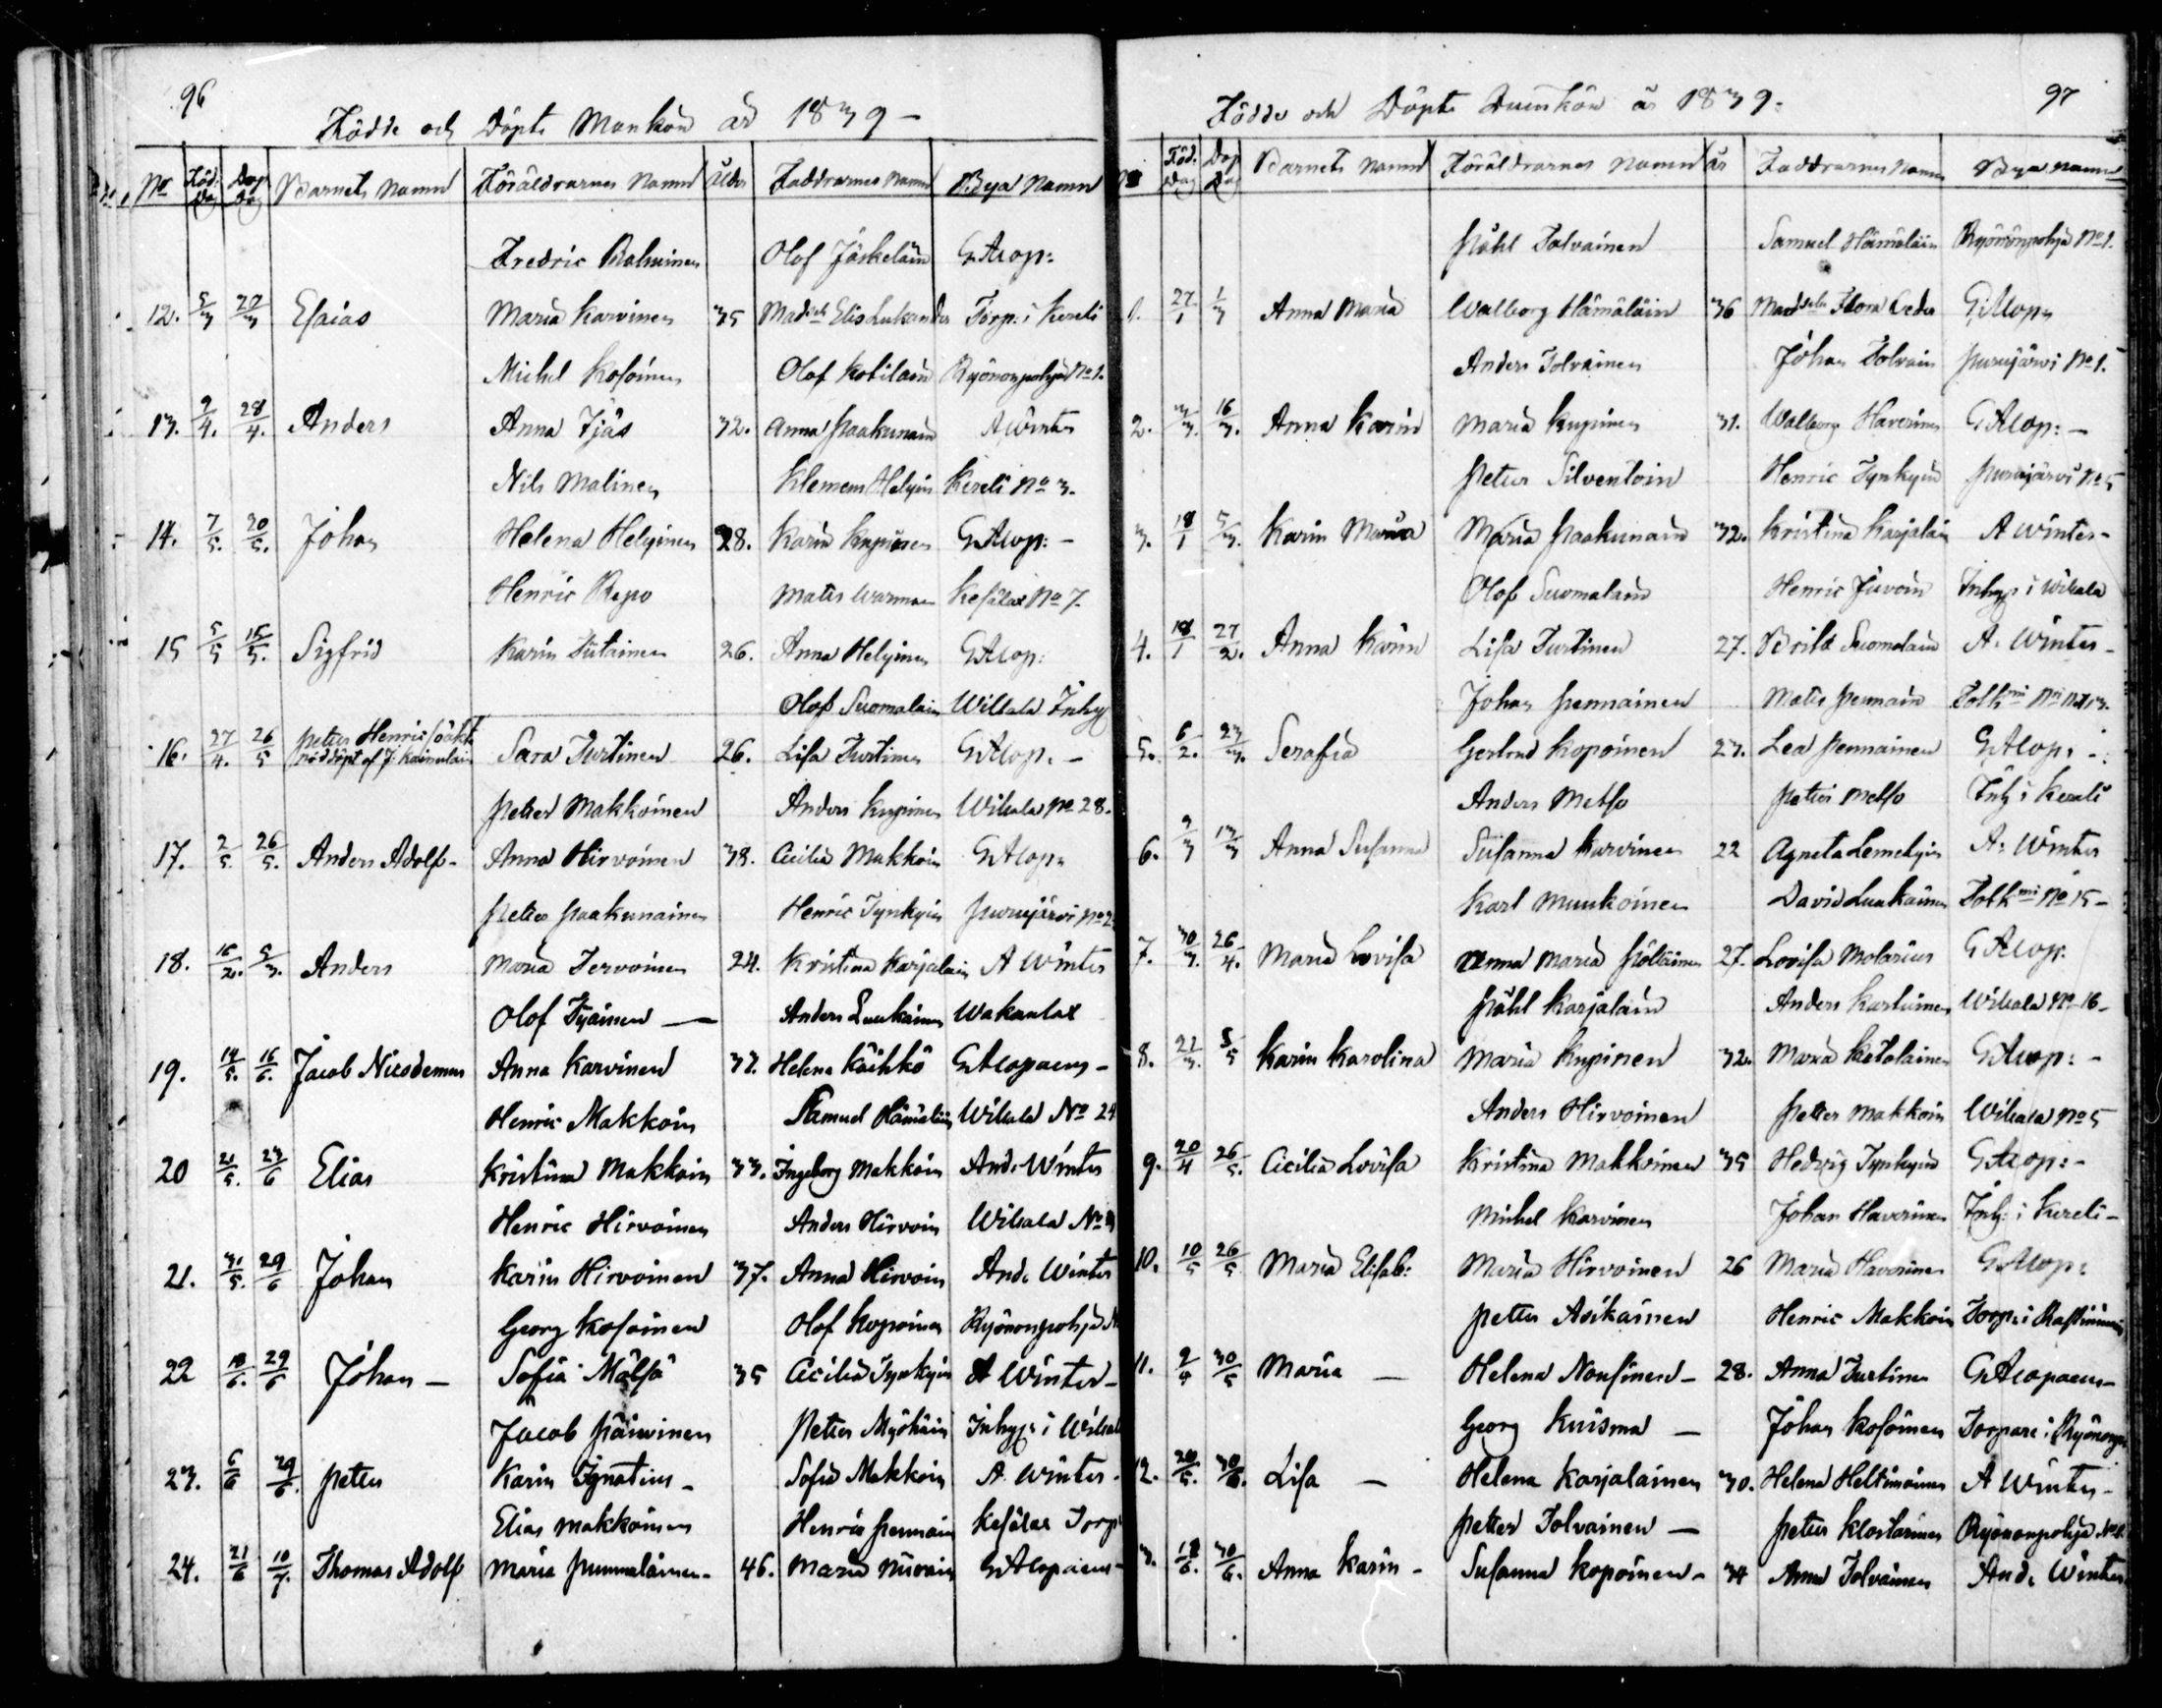 96
Födde och Döpte Mankön år 1839 –
No Föd: Dag Dop Dag Barnets namn Föräldrarnes Namn Ålder Faddrarnes namn Bya Namn
Fredric Olof Jäskeläin G Alop:
12. 5/3 27/3 Esaias Maria Karvinen 35 Torp: i Kereli
Michel Kosoinen Olof Kotilain Ryönönpohja No 1.
13. 9/4. 28/4. Anders Anna Tjäs 32. Anna Paakunain A Winter
Nils Malinen Klemem Helyin Kereli No 3.
14. 7/5. 20/5. Johan Helena Helyinen 28. Karin Kupinen G Alop: –
Henric Repo Mats Warman Kesälax No 7.
15 5/5 15/5. Sigfrid Karin Tiitainen 26. Anna Helyinen G Alop:
Olof Suomalain Wiltala Inhy
16. 27/4. 26/5 Petter Henric Sara Turtinen 26. Lisa Turtinen G Alop. –
nöddöpt af J: Kainulain
Petter Makkoinen Anders Kupinen No 28.
17. 2/5. 26/5. Anders Adolf – Anna Hirvoinen 38. Cecilia Makkoin G Alop:
Petter Paakunainen Henric Tynkyin Purujärvi No 2
18. 16/2. 5/3. Anders Maria Tervoinen 24. Kristina Karjalain A Winter
Olof Tjäinen — Anders Luukainen
19. 14/5. 16/6. Jacob Nicodemus Anna Karvinen 32. Helena Käihkö G Alopaeus –
Henric Makkoin Samuel Hämäläin No 24
20 21/5. 23/6 Elias Kristina Makkoin 33. Ingeborg Makkoin And: Winter
Henric Hirvoinen Anders Hirvoin
21. 31/5. 29/6 Johan Karin Hirvoinen 37. Anna Hirvoin And: Winter
Georg Kosoinen Olof Kopoinen Ryönonpohja
22 29/6 Johan – Sofia Mälsä 35 Cecilia Tynkyin A Winter –
Jacob Päivinen Petter Myöhäin Inhys: i
23. 6/6 29/6. Petter Karin Ignatius – Sofia Makkoin A. Winter –
Elias Makkoinen Henric Pennain Kesälax Torp
24. 21/6 10/7. Thomas Adolf Maria Pummalainen – 46. Maria G Alopaeus –
97
Födde och Döpte Quinkön år 1839.
Föd: Dag Dop Dag Barnets namn Föräldrarnes namn år Faddrarnes namn Bya namn
Påhl Tolvainen Samuel Hämäläin Ryönönpohja No 1.
1. 27/1 1/3 Anna Maria Walborg Hämäläin 36 G: Alop:
Anders Tolvainen Johan Tolvain Purujärvi No 1.
2. 3/3. 16/3. Anna Karin Maria Kupinen 31. Walborg Haverinen G Alop: –
Petter Silventoin Henric Tynkyin Purujärvi No 5
3. 18/1 5/3. Karin Maria Maria Paakunain 32. Kristina Karjalain A Winter –
Olof Suomalain Henric Juvoin Inhys i
4. 18/1 27/2. Anna Karin Lisa Turtinen 27. Brita Suomalain A. Winter –
Johan Pennainen Mats Pennain
5. 6/2. 23/3. Serafia Gertrud Kopoinen 23. Lea Pennainen G Alop: –
Anders Metso Petter Metso Inh: i Kereli
6. 9/3 13/3 Anna Susanna Susanna Karvinen 22 Agneta Lemetyin A: Winter
Karl Muukoinen David Luukainen No 15 –
7. 30/3. 26/4. Maria Lovisa Anna Maria Pöllänen 27. Lovisa Molarius G Alop:
Påhl Karjalain Anders Karhuinen No 16 –
8. 21/3. 5/5 Karin Karolina Maria Kupinen 32. Maria Ketolainen G Alop: –
Anders Hirvoinen Petter Makkoin No 5
9. 20/4 26/5. Cicilia Lovisa Kristina Makkoinen 35 Hedvig Tynkyin G Alop: –
Michel Karvinen Johan Haverinen Inh: i Kereli –
10. 10/5 26/5 Maria Elisab: Maria Hirvoinen 26 Maria Haverinen G Alop:
Petter Asikainen Henric Makkoin Torp: i
11. 9/4 30/5 Maria — Helena Nousinen – 28. Anna Turtinen G Alopaeus –
Georg Kuisma — Johan Kosoinen Torpare i
12. 20/5. 30/6. Lisa — Helena Karjalainen 30. Helena A Winter –
Petter Tolvainen — Petter Klostarinen Ryönonpohja
3. 12/6. 30/6. Anna Karin – Susanna Kopoinen – 34 Anna Tolvainen And: Winter